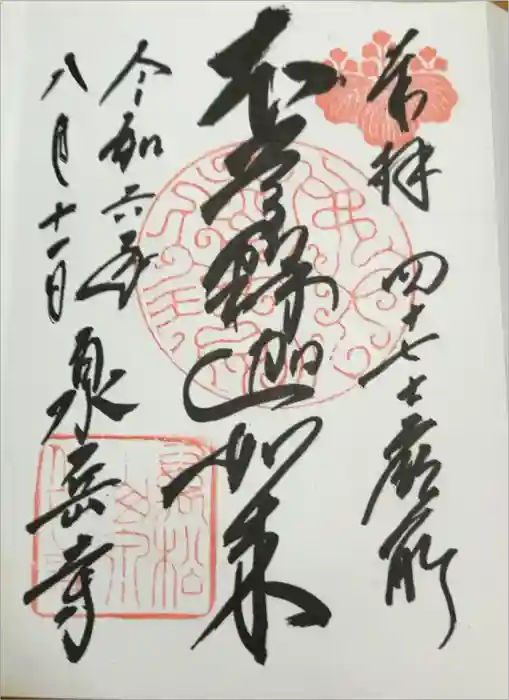 奉拝 四十七士霊前
本尊釋迦如来
令和六年
八月十一日
泉岳寺